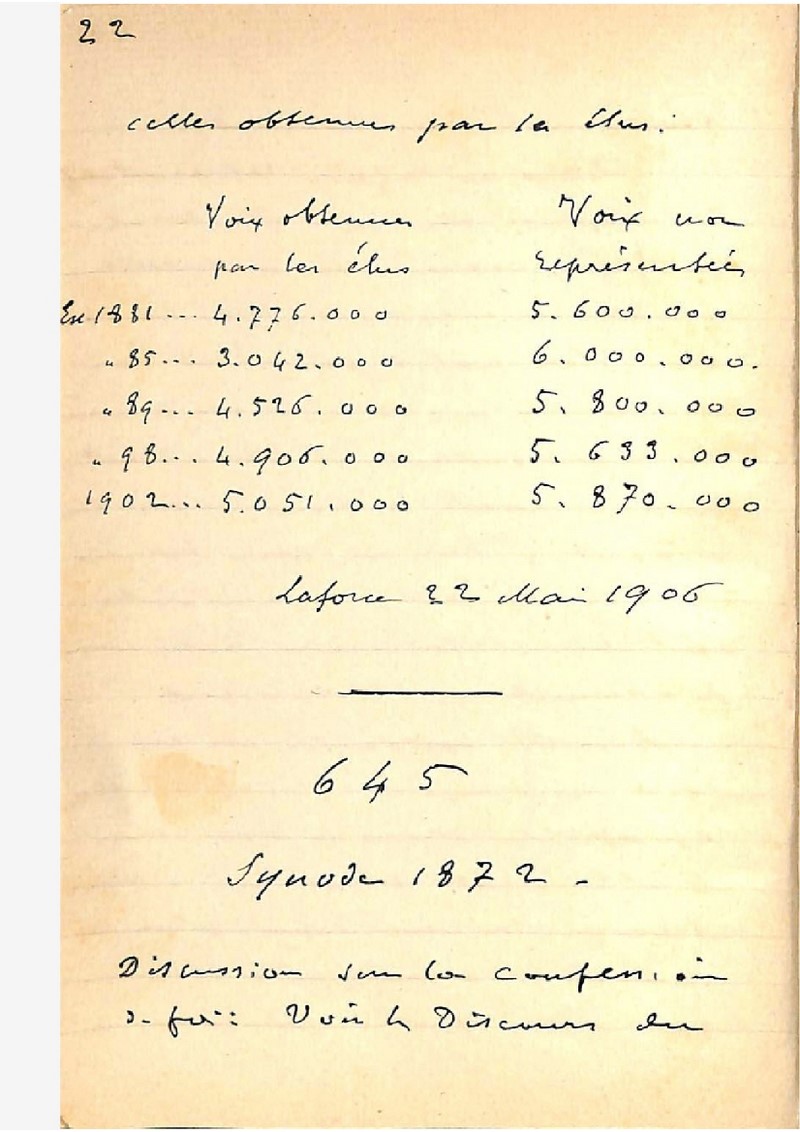 22
celles obtenues par les élus:
Voix obtenues Voix non
par les élus représentées
En 1881 ... 4.776.000 5.600.000
" 85 ... 3.042.000 6.000.000.
" 89 ... 4.526.000 5.800.000
" 98 ... 4.906.000 5.633.000
1902 ... 5.051.000 5.870.000
Laforce 22 Mai 1906
645
Synode 1872 -
Discussion sur la confession
de foi: Voir le Discours du